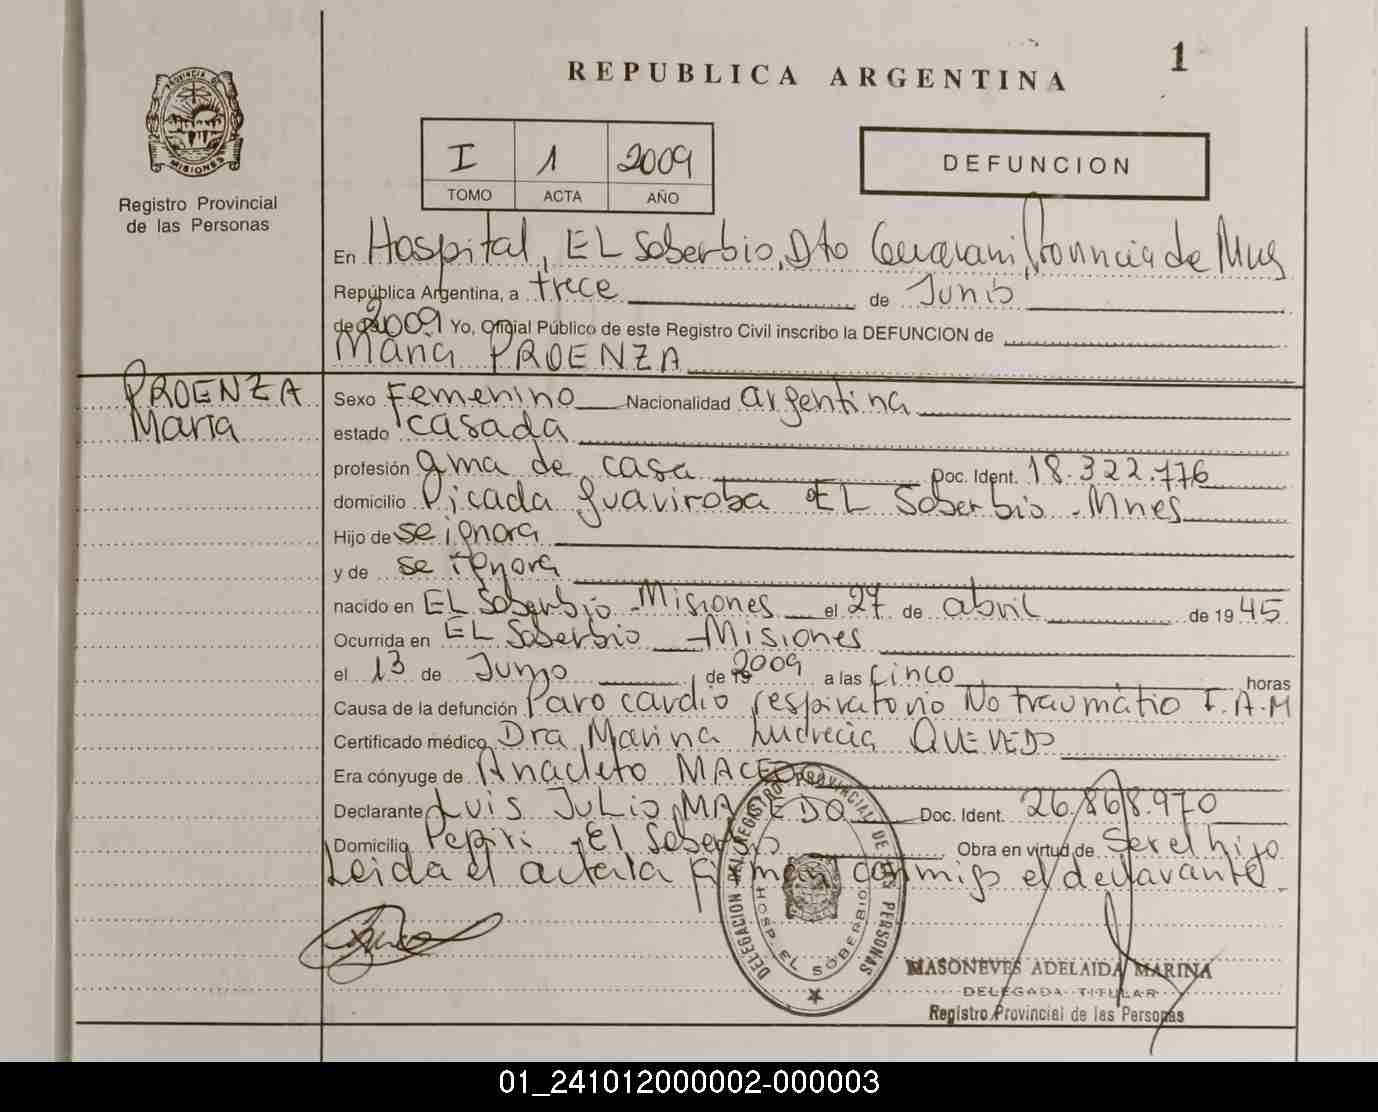 1
REPUBLICA ARGENTINA
PROVINCIA D
MISIONES
Registro Provincial
de las Personas
I 1 2009
TOMO ACTA AÑO
DEFUNCION
En Hospital, EL Soberbio, Dto Guarani, Provincia de Mnes
República Argentina, a trece de Junio
de 2009 Yo, Oficial Público de este Registro Civil inscribo la DEFUNCION de
Maria PROENZA
PROENZA
Maria
Sexo Femenino Nacionalidad argentina
estado casada
profesión ama de casa Doc. Ident. 18.322.776
domicilio Picada guaviroba EL Soberbio - Mnes
Hijo de se ignora
y de se ignora
nacido en EL Soberbio - Misiones el 27 de abril de 1945
Ocurrida en EL Soberbio - Misiones
el 13 de Junio de 2009 a las cinco horas
Causa de la defunción Paro cardio respiratorio No traumátio I.A.M
Certificado médico Dra. Marina Lucrecia QUEVEDO
Era cónyuge de Anacleto MACEDO
Declarante Luis JULIO MACEDO Doc. Ident. 26.868.970
Domicilio Pepiri - El Soberbio Obra en virtud de Ser el hijo
Leida el acta la firman conmigo el declarante.
DELEGACION REGISTRO PROVINCIAL DE LAS PERSONAS
HOSP. EL SOBERBIO
MASONEVES ADELAIDA MARINA
DELEGADA TITULAR
Registro Provincial de las Personas
01_241012000002-000003